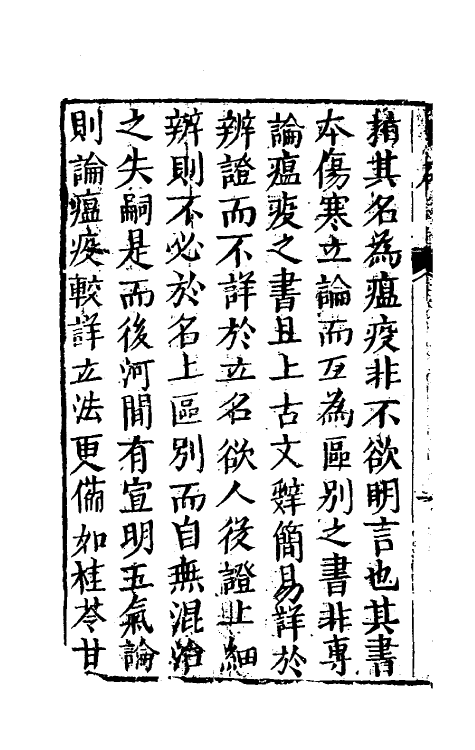 精其名為瘟疫非不欲明言也其書
本傷寒立論而互為區别之書非專
論瘟疫之書且上古文辤簡易詳於
辨證而不詳於立名欲人從證上細
辨則不必於名上區别而自無混淆
之失嗣是而後河間有宣明五氣論
則論瘟疫較詳立法更俻如桂苓甘